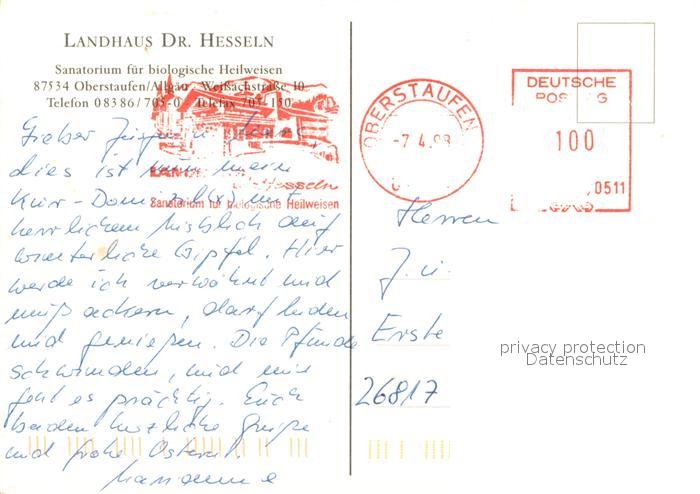 LANDHAUS DR. HESSELN
Sanatorium für biologische Heilweisen
87534 Oberstaufen/Allgäu Weißachstraße 10
Telefon 08386/705-0 Telefax 705-150
Hesseln
Sanatorium für biologische Heilweisen
OBERSTAUFEN
-7.4.98
DEUTSCHE
100
0511
Lieber
dies ist mein
Kur-Domizil (x) mit
herrlichem Ausblick auf
winterliche Gipfel. Hier
werde ich verwöhnt und
muß ackern, darf leiden
und genießen. Die Pfunde
schwinden, und mir
geht es prächtig. Euch
beiden herzliche Grüße
und frohe Ostern.
Marianne
Herren
J. u.
Erste
26817
privacy protection
Datenschutz